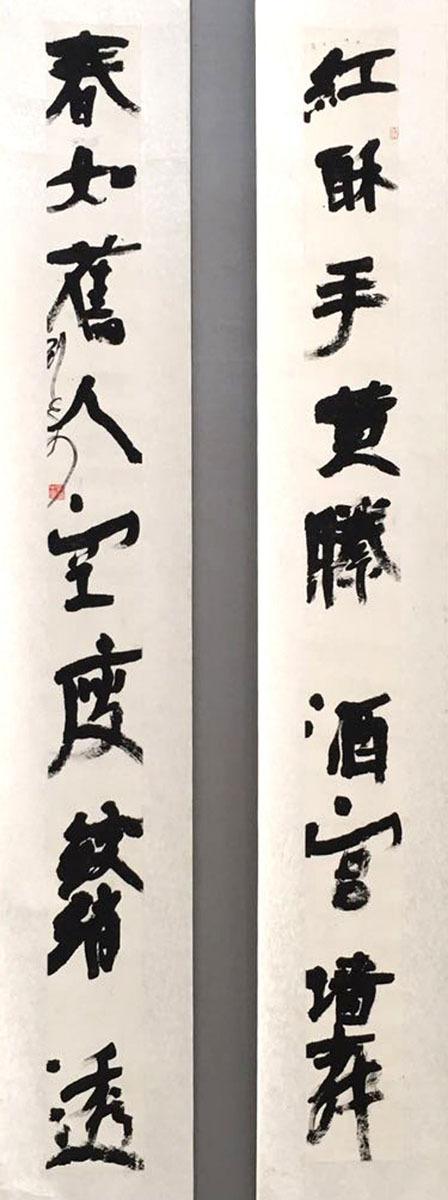 紅酥手黄縢酒宫墙
春如舊人空瘦綃透